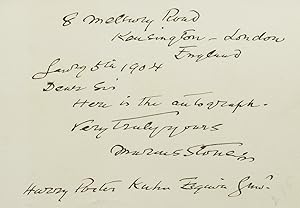 8 Melbury Road
Kensington - London
England
Jany 5th 1904
Dear Sir
Here is the autograph.
Very truly yours
Marcus Stone
Harry Porter Kuhn Esquire